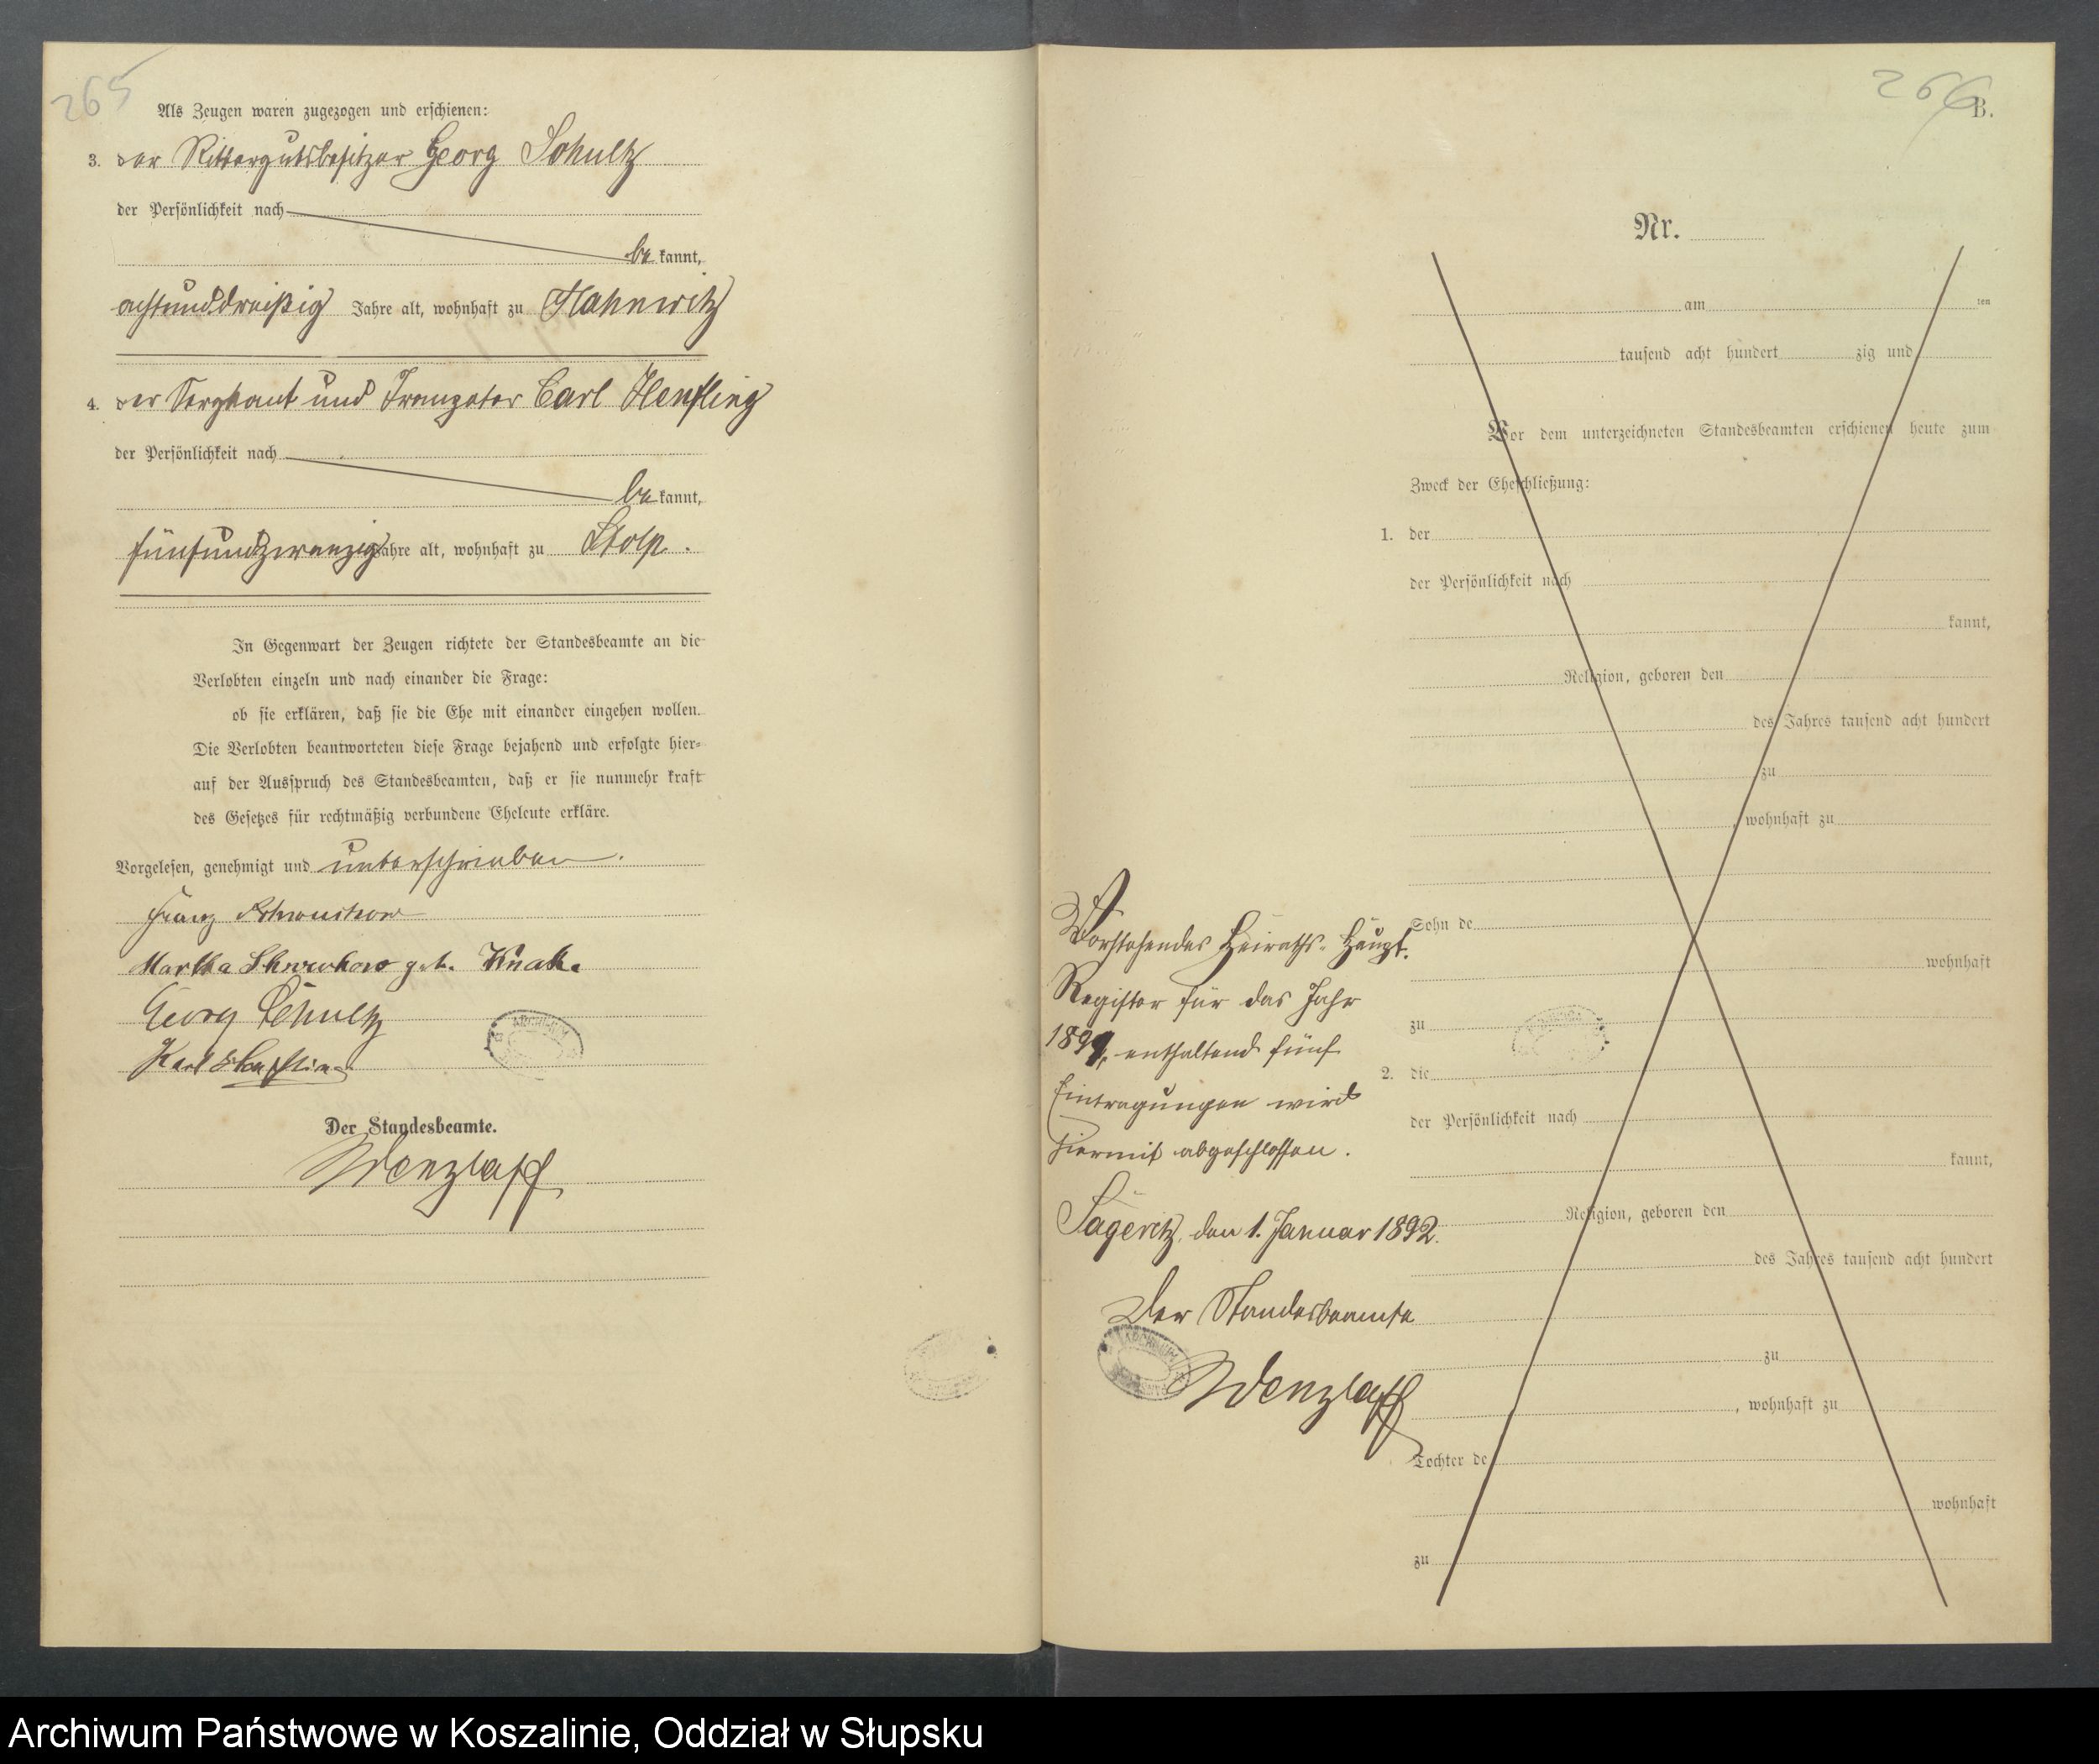 265
Als Zeugen waren zugezogen und erschienen:
3. der Rittergutsbesitzer Georg Schultz
der Persönlichkeit nach
be kannt,
achtunddreißig Jahre alt, wohnhaft zu Hahnwitz
4. der Sergeant und Trompeter Carl Henfling
der Persönlichkeit nach
be kannt,
fünfundzwanzig Jahre alt, wohnhaft zu Stolp.
In Gegenwart der Zeugen richtete der Standesbeamte an die
Verlobten einzeln und nach einander die Frage:
ob sie erklären, daß sie die Ehe mit einander eingehen wollen.
Die Verlobten beantworteten diese Frage bejahend und erfolgte hier-
auf der Ausspruch des Standesbeamten, daß er sie nunmehr kraft
des Gesetzes für rechtmäßig verbundene Eheleute erkläre.
Vorgelesen, genehmigt und unterschrieben.
Franz
Martha geb. Knak.
Georg Schultz
Karl
Der Standesbeamte.
Wenzlaff
266
B.
Nr.
am ten
tausend acht hundert zig und
Vor dem unterzeichneten Standesbeamten erschienen heute zum
Zweck der Eheschließung:
1. der
der Persönlichkeit nach
kannt,
Religion, geboren den
des Jahres tausend acht hundert
zu
, wohnhaft zu
Sohn de
wohnhaft
zu
2. die
der Persönlichkeit nach
kannt,
Religion, geboren den
des Jahres tausend acht hundert
zu
, wohnhaft zu
Tochter de
wohnhaft
zu
Vorstehendes Heiraths-Haupt-
Register für das Jahr
1891, enthaltend fünf
Eintragungen wird
hiermit abgeschlossen.
Sageritz, den 1. Januar 1892.
Der Standesbeamte
Wenzlaff
Archiwum Państwowe w Koszalinie, Oddział w Słupsku